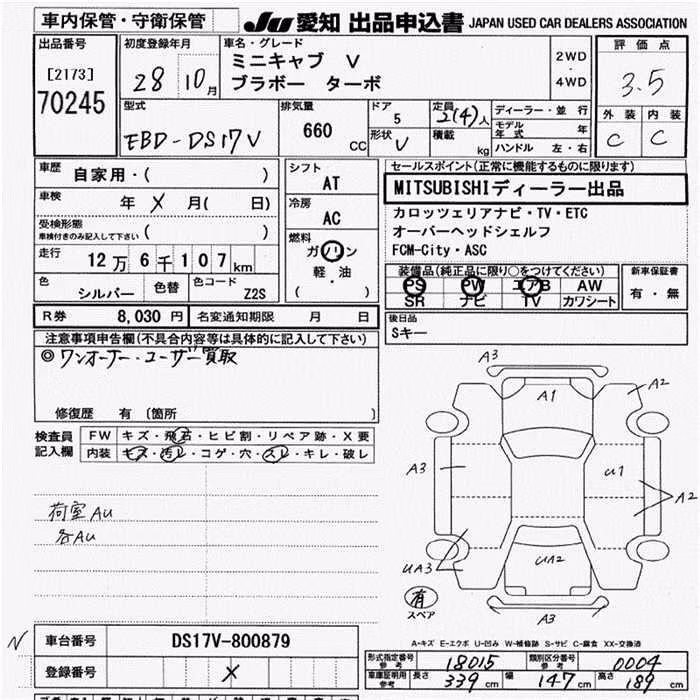 車内保管・守衛保管
JU 愛知 出品申込書 JAPAN USED CAR DEALERS ASSOCIATION
出品番号
[2173]
70245
初度登録年月
28 10月
車名・グレード
ミニキャブ V
ブラボー ターボ
2WD
・
4WD
評価点
3.5
外装 内装
C C
型式
EBD-DS17V
排気量
660 CC
ドア
5
形状
V
定員
2(4)人
積載 kg
ディーラー・並行
モデル年式 年
ハンドル 左・右
車歴 自家用・( )
車検 年 X 月( 日)
受検形態
車検付きのみ記入して下さい ( )
走行 12万6千107km
色 シルバー 色替 色コード Z2S
シフト
AT
冷房
AC
燃料
ガソリン
軽・油
( )
セールスポイント(正常に機能するものに限ります)
MITSUBISHIディーラー出品
カロッツェリアナビ・TV・ETC
オーバーヘッドシェルフ
FCM-City・ASC
装備品(純正品に限り○をつけてください)
PS PW エアB AW
SR ナビ TV カワシート
新車保証書
有・無
R券 8,030円 名変通知期限 月 日
後日品
Sキー
注意事項申告欄(不具合内容等は具体的に記入して下さい)
◎ワンオーナー・ユーザー買取
修復歴 有 〔箇所 〕
検査員記入欄
FW キズ・飛石・ヒビ割・リペア跡・X要
内装 キズ・汚レ・コゲ・穴・スレ・キレ・破レ
荷室AU
各AU
A3
A1
A2
A3
U1
A2
UA3
UA2
有
スペア
A3
A-キズ E-エクボ U-凹み W-補修跡 S-サビ C-腐食 XX-交換済
N
車台番号 DS17V-800879
登録番号 X
形式指定番号 参考 18015 類別区分番号 参考 0004
車庫証明用 参考 長さ 339cm 幅 147cm 高さ 189cm